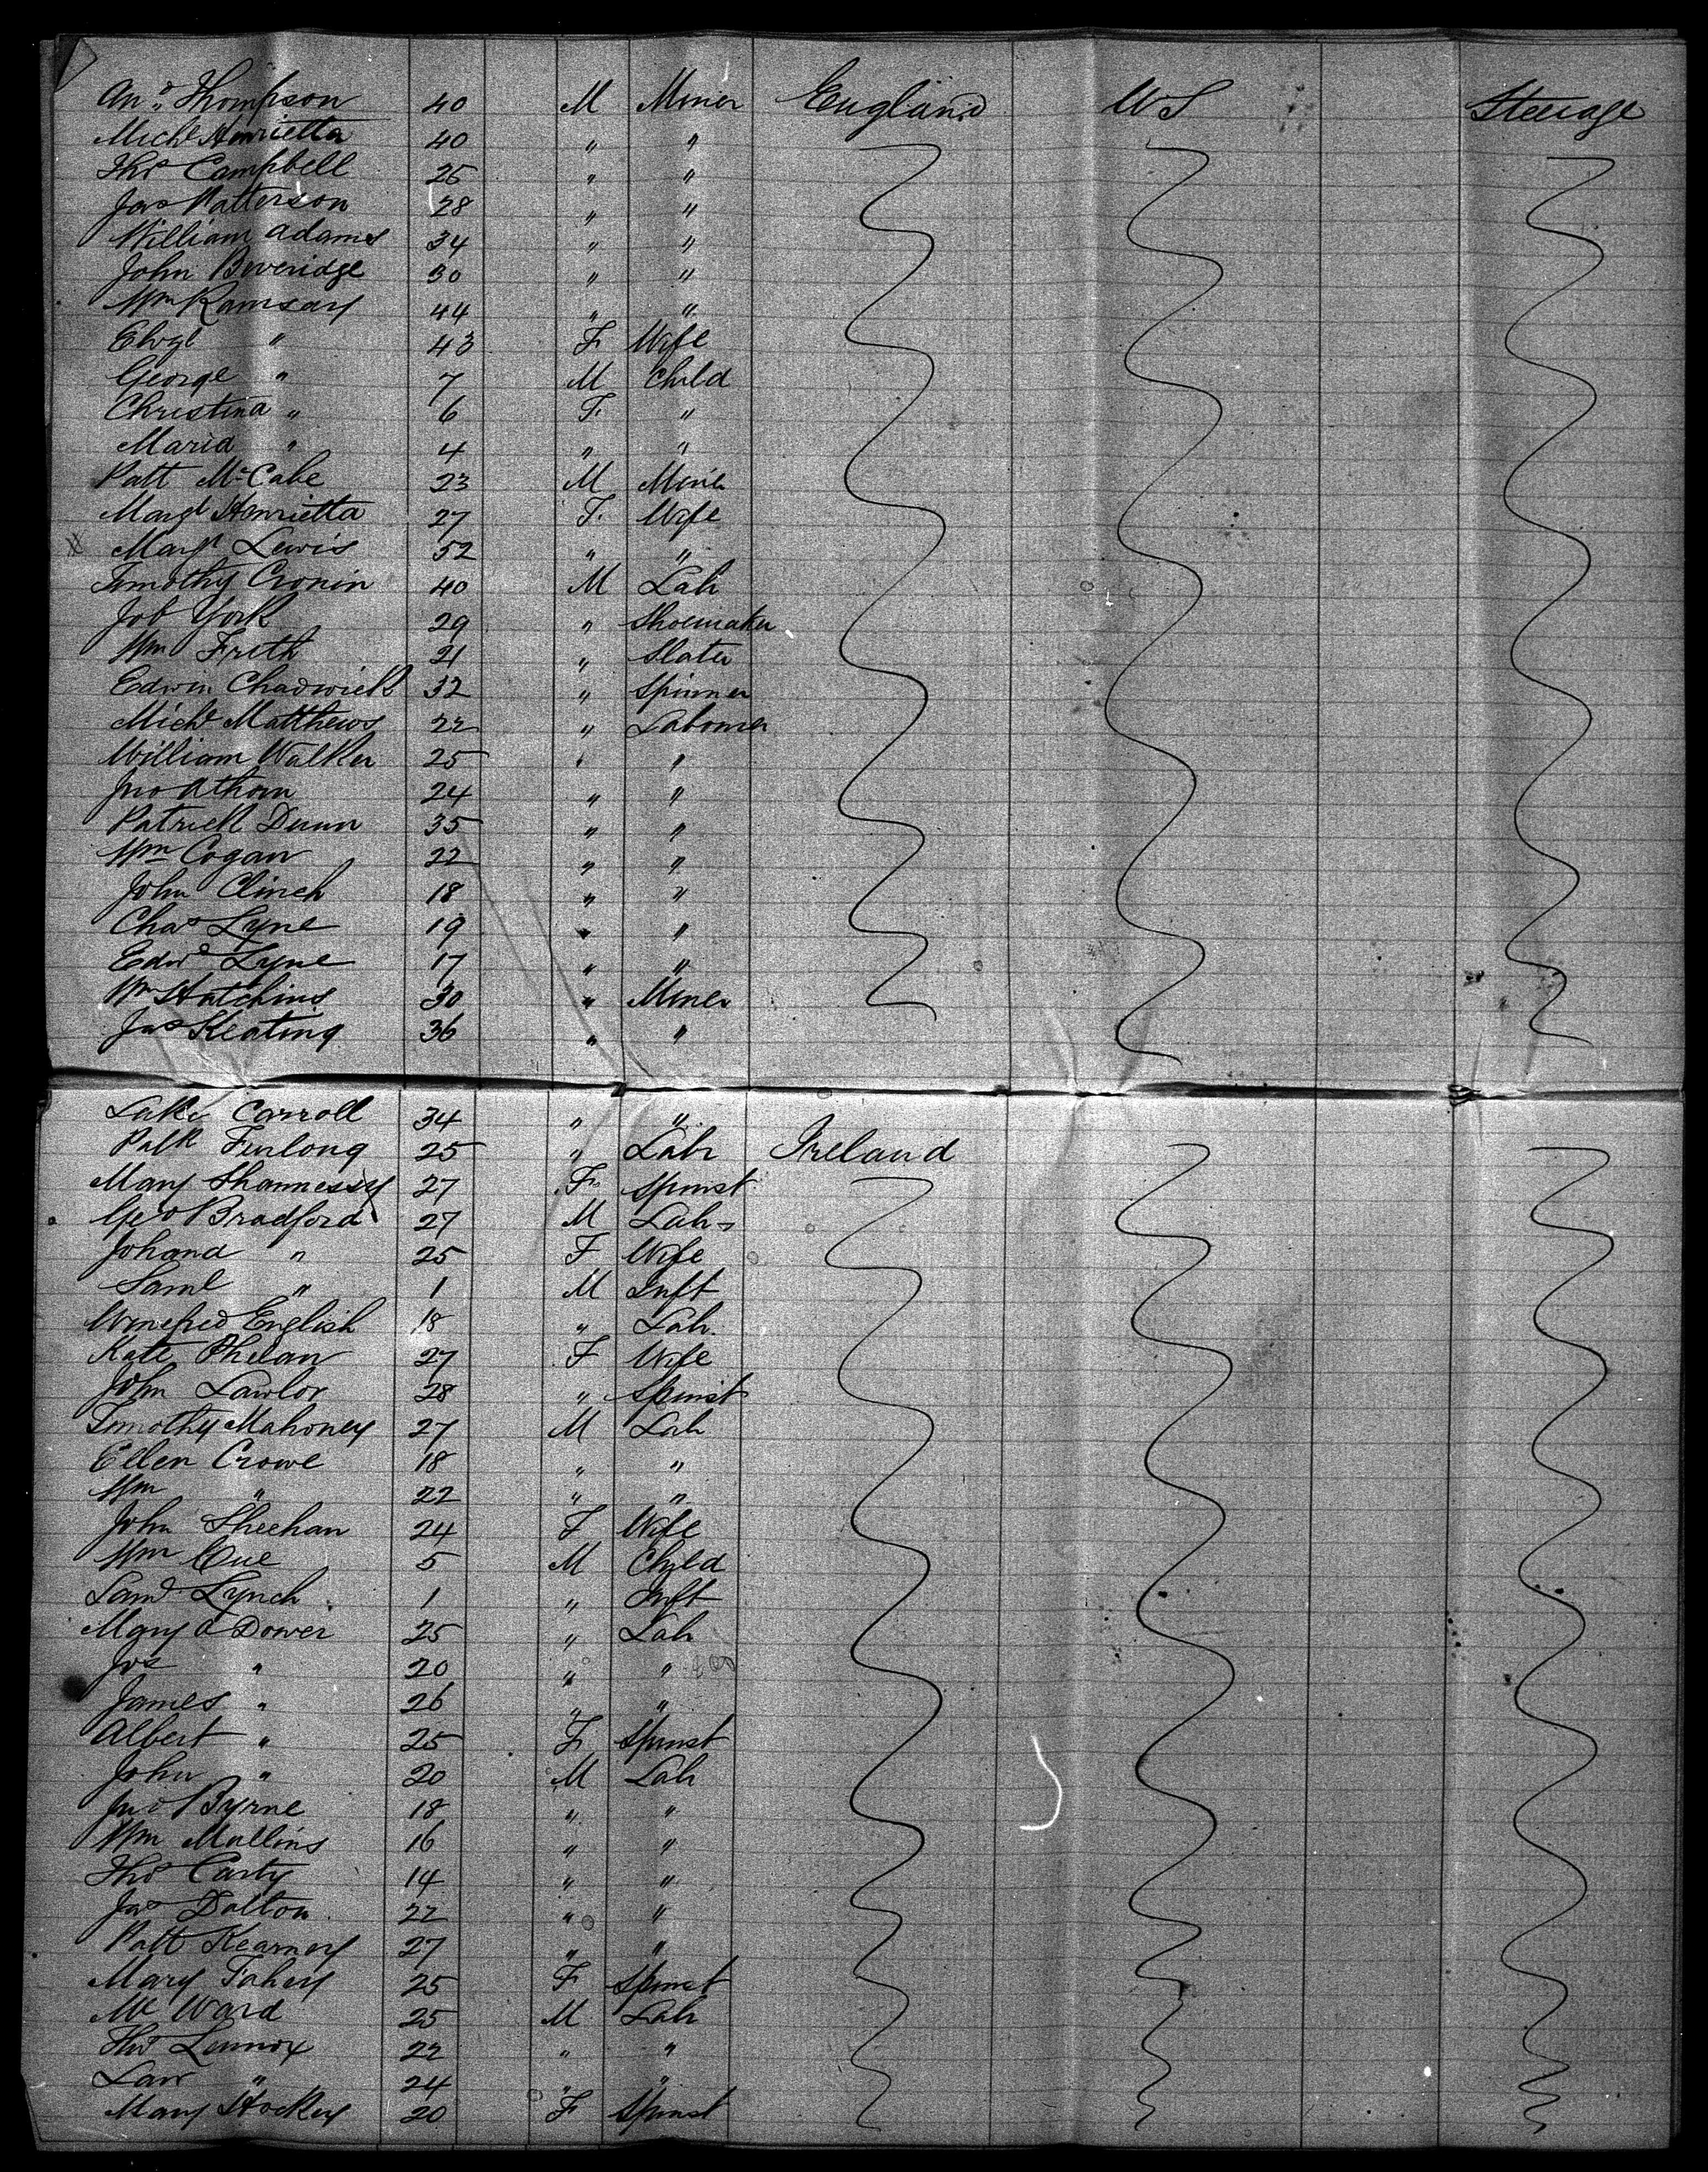 And Thompson 40 M Miner England US Steerage
Michl Henrietta 40 " "
Thos Campbell 25 " "
Jas Patterson 28 " "
William Adams 34 " "
John Beveridge 30 " "
Wm Ramsay 44 " "
" 43 F Wife
George " 7 M Child
Christina " 6 F "
Maria " 4 " "
Patt McCabe 23 M Miner
Margt Henrietta 27 F Wife
Margt Lewis 52 " "
Timothy Cronin 40 M Lab
Job York 29 " Shoemaker
Wm Frith 21 " Slater
Edwin Chadwick 32 " Spinner
Michl Matthews 22 " Labourer
William Walker 25 " "
Jno Athorn 24 " "
Patrick Dunn 35 " "
Wm Cogan 22 " "
John Clinch 18 " "
Chas Lyne 19 " "
Edwd Lyne 17 " "
Wm Hutchins 30 " Miner
Jas Keating 36 " "
Luke Carroll 34 " "
Patk Furlong 25 " Labr Ireland
Mary Shannessy 27 F Spinst
Geo Bradford 27 M Labr
Johana " 25 F Wife
Saml " 1 M Inft
Winefred English 18 " Lab.
Kate Phelan 27 F Wife
John Lawlor 28 " Spinst
Timothy Mahoney 27 M Lab
Ellen Crowe 18 " "
Wm " 22 " "
John Sheehan 24 F Wife
Wm Cue 5 M Child
Lynch 1 " Inft
Mary A Dower 25 " Lab
Jos " 20 " "
James " 26 " "
Albert " 25 F Spinst
John " 20 M Lab
Jno Byrne 18 " "
Wm Mullins 16 " "
Thos Carty 14 " "
Jas Dalton 22 " "
Patt Kearney 27 " "
Mary Fahey 25 F Spinst
Ward 25 M Lab
Thos Lennox 22 " "
Law " 24 " "
Mary Hockey 20 F Spinst